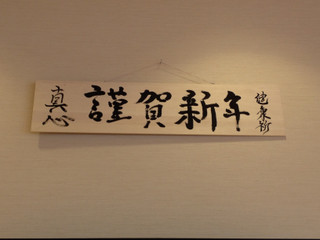 真心
謹賀新年